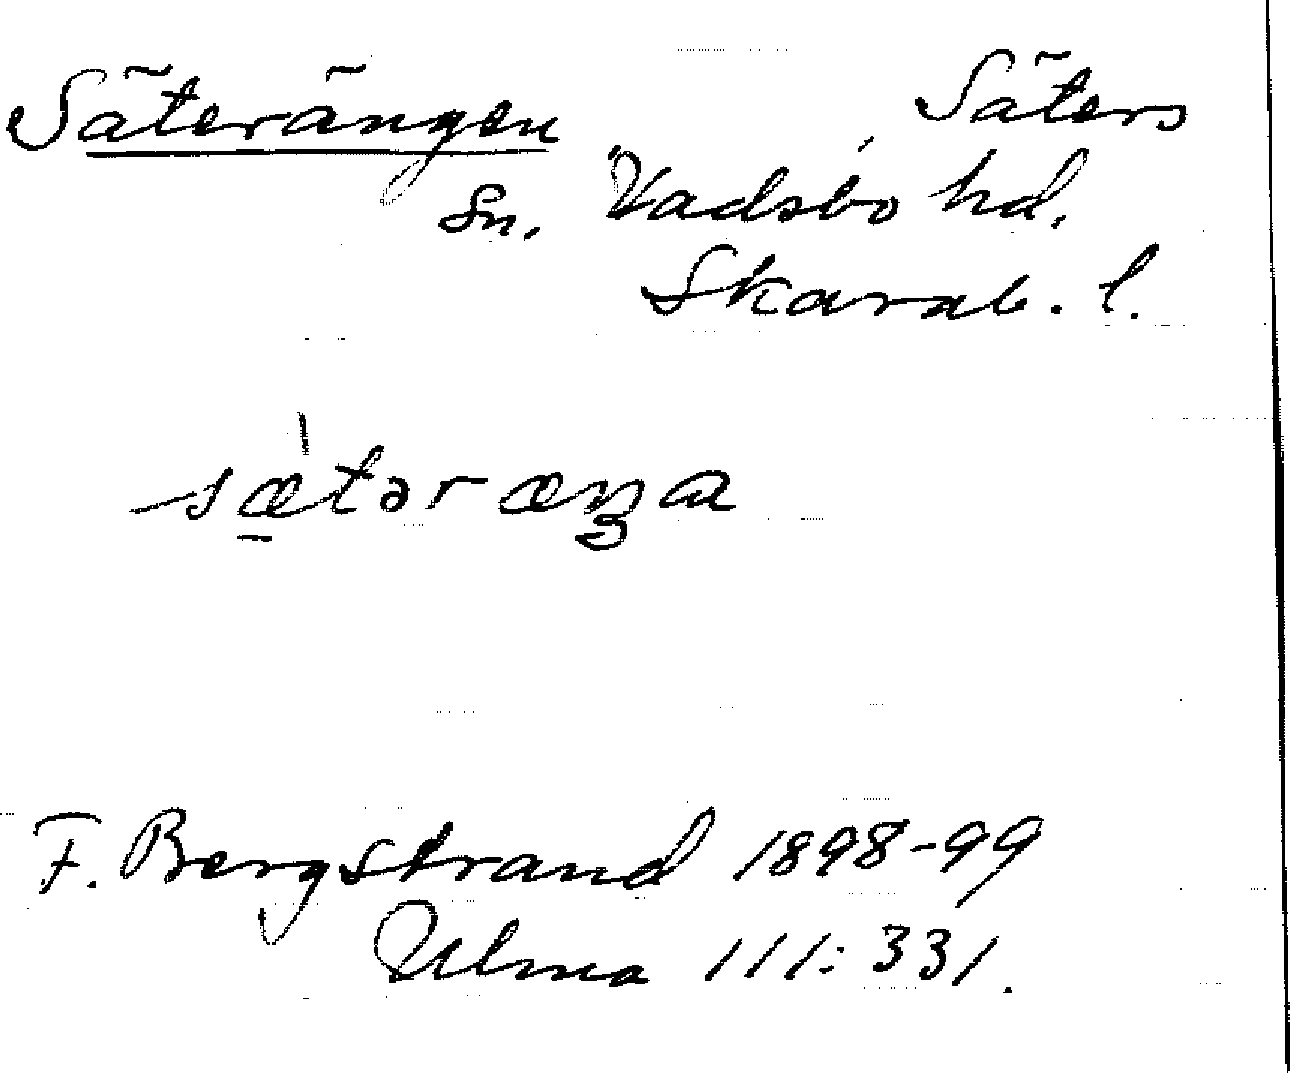 Säterängen Säters
sn. Vadsbo hd.
Skarab. l.
sæ̠̍təræŋa
F. Bergstrand 1898-99
Ulma 111:331.